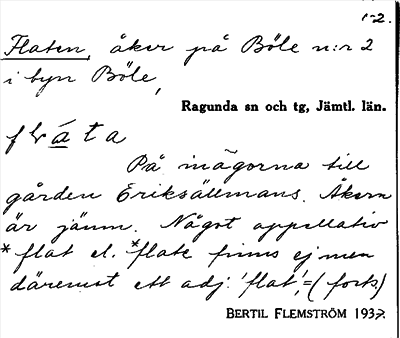 1-2.
Flaten, åker på Böle n:r 2
i byn Böle,
Ragunda sn och tg, Jämtl. län.
På mägorna till
gården Eriksällmans. Åkern
är jämn. Något appellativ
*flat el. *flate finns ej men
däremot ett adj. 'flat,' = (forts.)
BERTIL FLEMSTRÖM 1937.